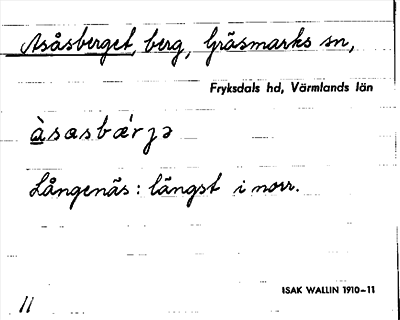 Asåsberget, berg, Gräsmarks sn,
Fryksdals hd, Värmlands län
àsasbæ̀rjə
Långenäs: längst i norr.
ISAK WALLIN 1910–11
11